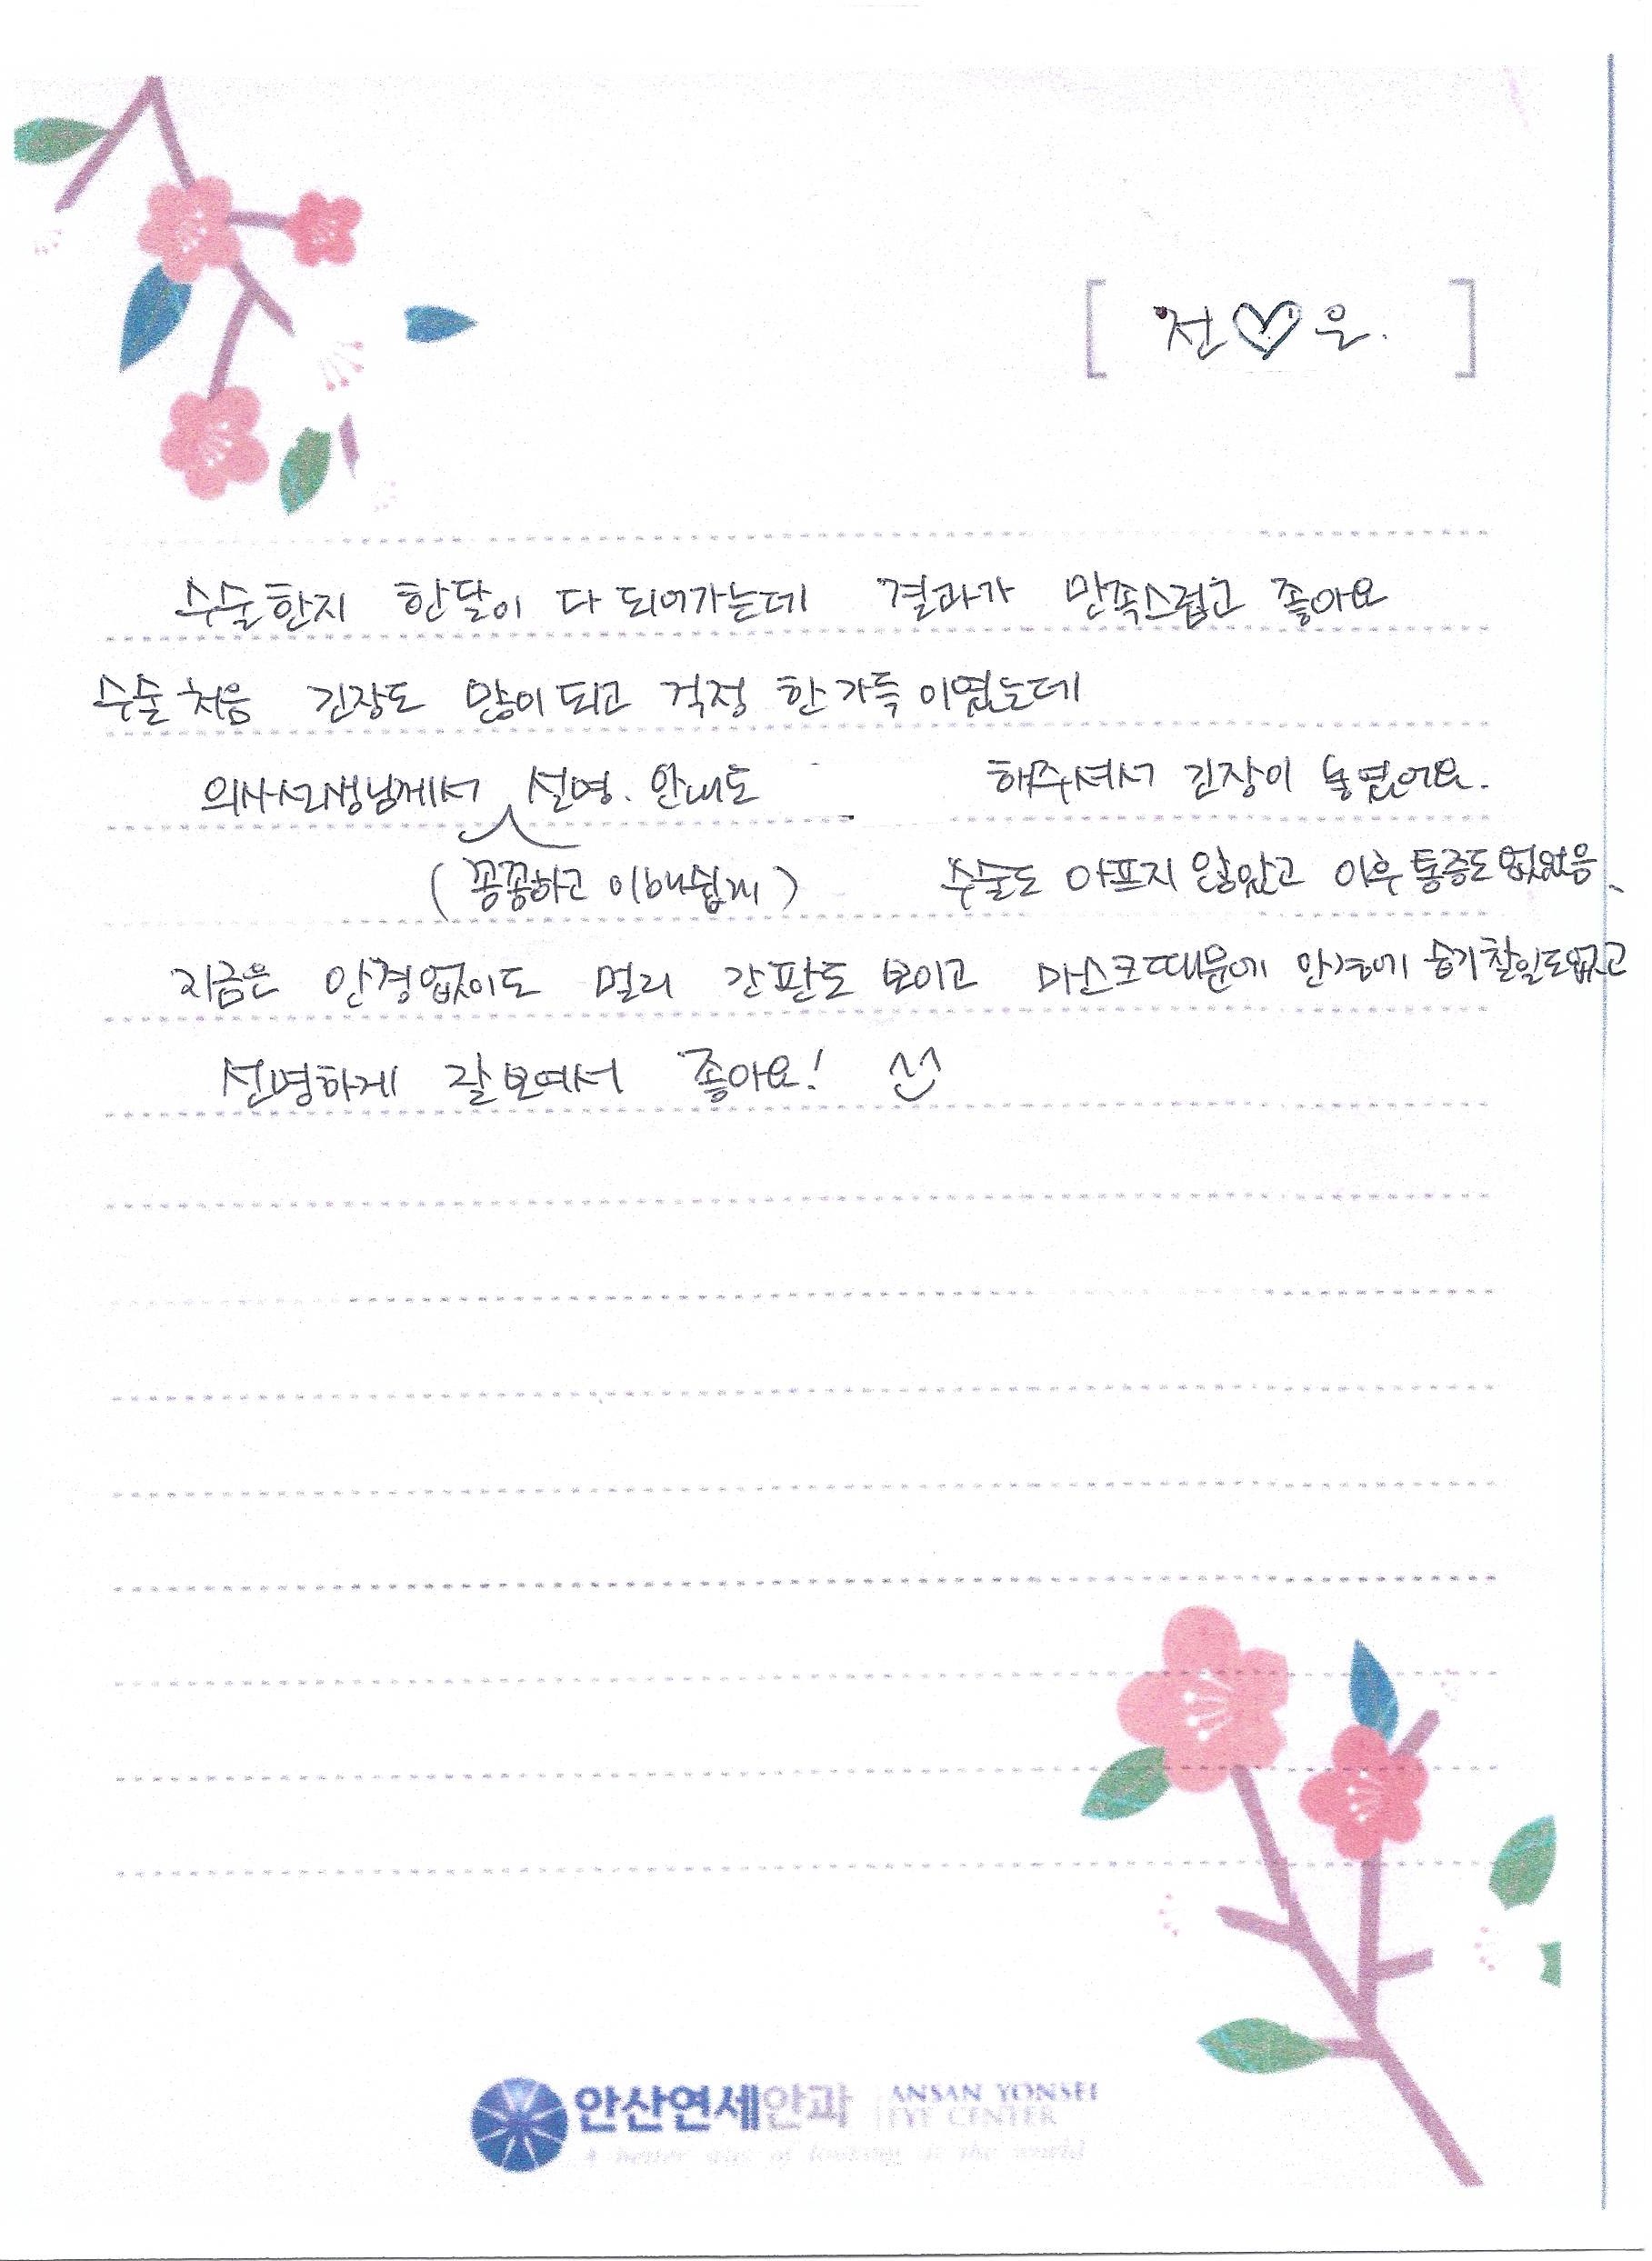 [ 전♡은. ]
수술한지 한달이 다 되어가는데 결과가 만족스럽고 좋아요
수술 처음 긴장도 많이 되고 걱정 한가득 이였는데
의사선생님께서 설명. 안내도 해주셔서 긴장이 놓였어요.
(꼼꼼하고 이해쉽게) 수술도 아프지 않았고 이후 통증도 없었음.
지금은 안경없이도 멀리 간판도 보이고 마스크때문에 안경에 습기찰일도없고
선명하게 잘보여서 좋아요! ^^
안산연세안과 ANSAN YONSEI
EYE CENTER
A better way of looking at the world